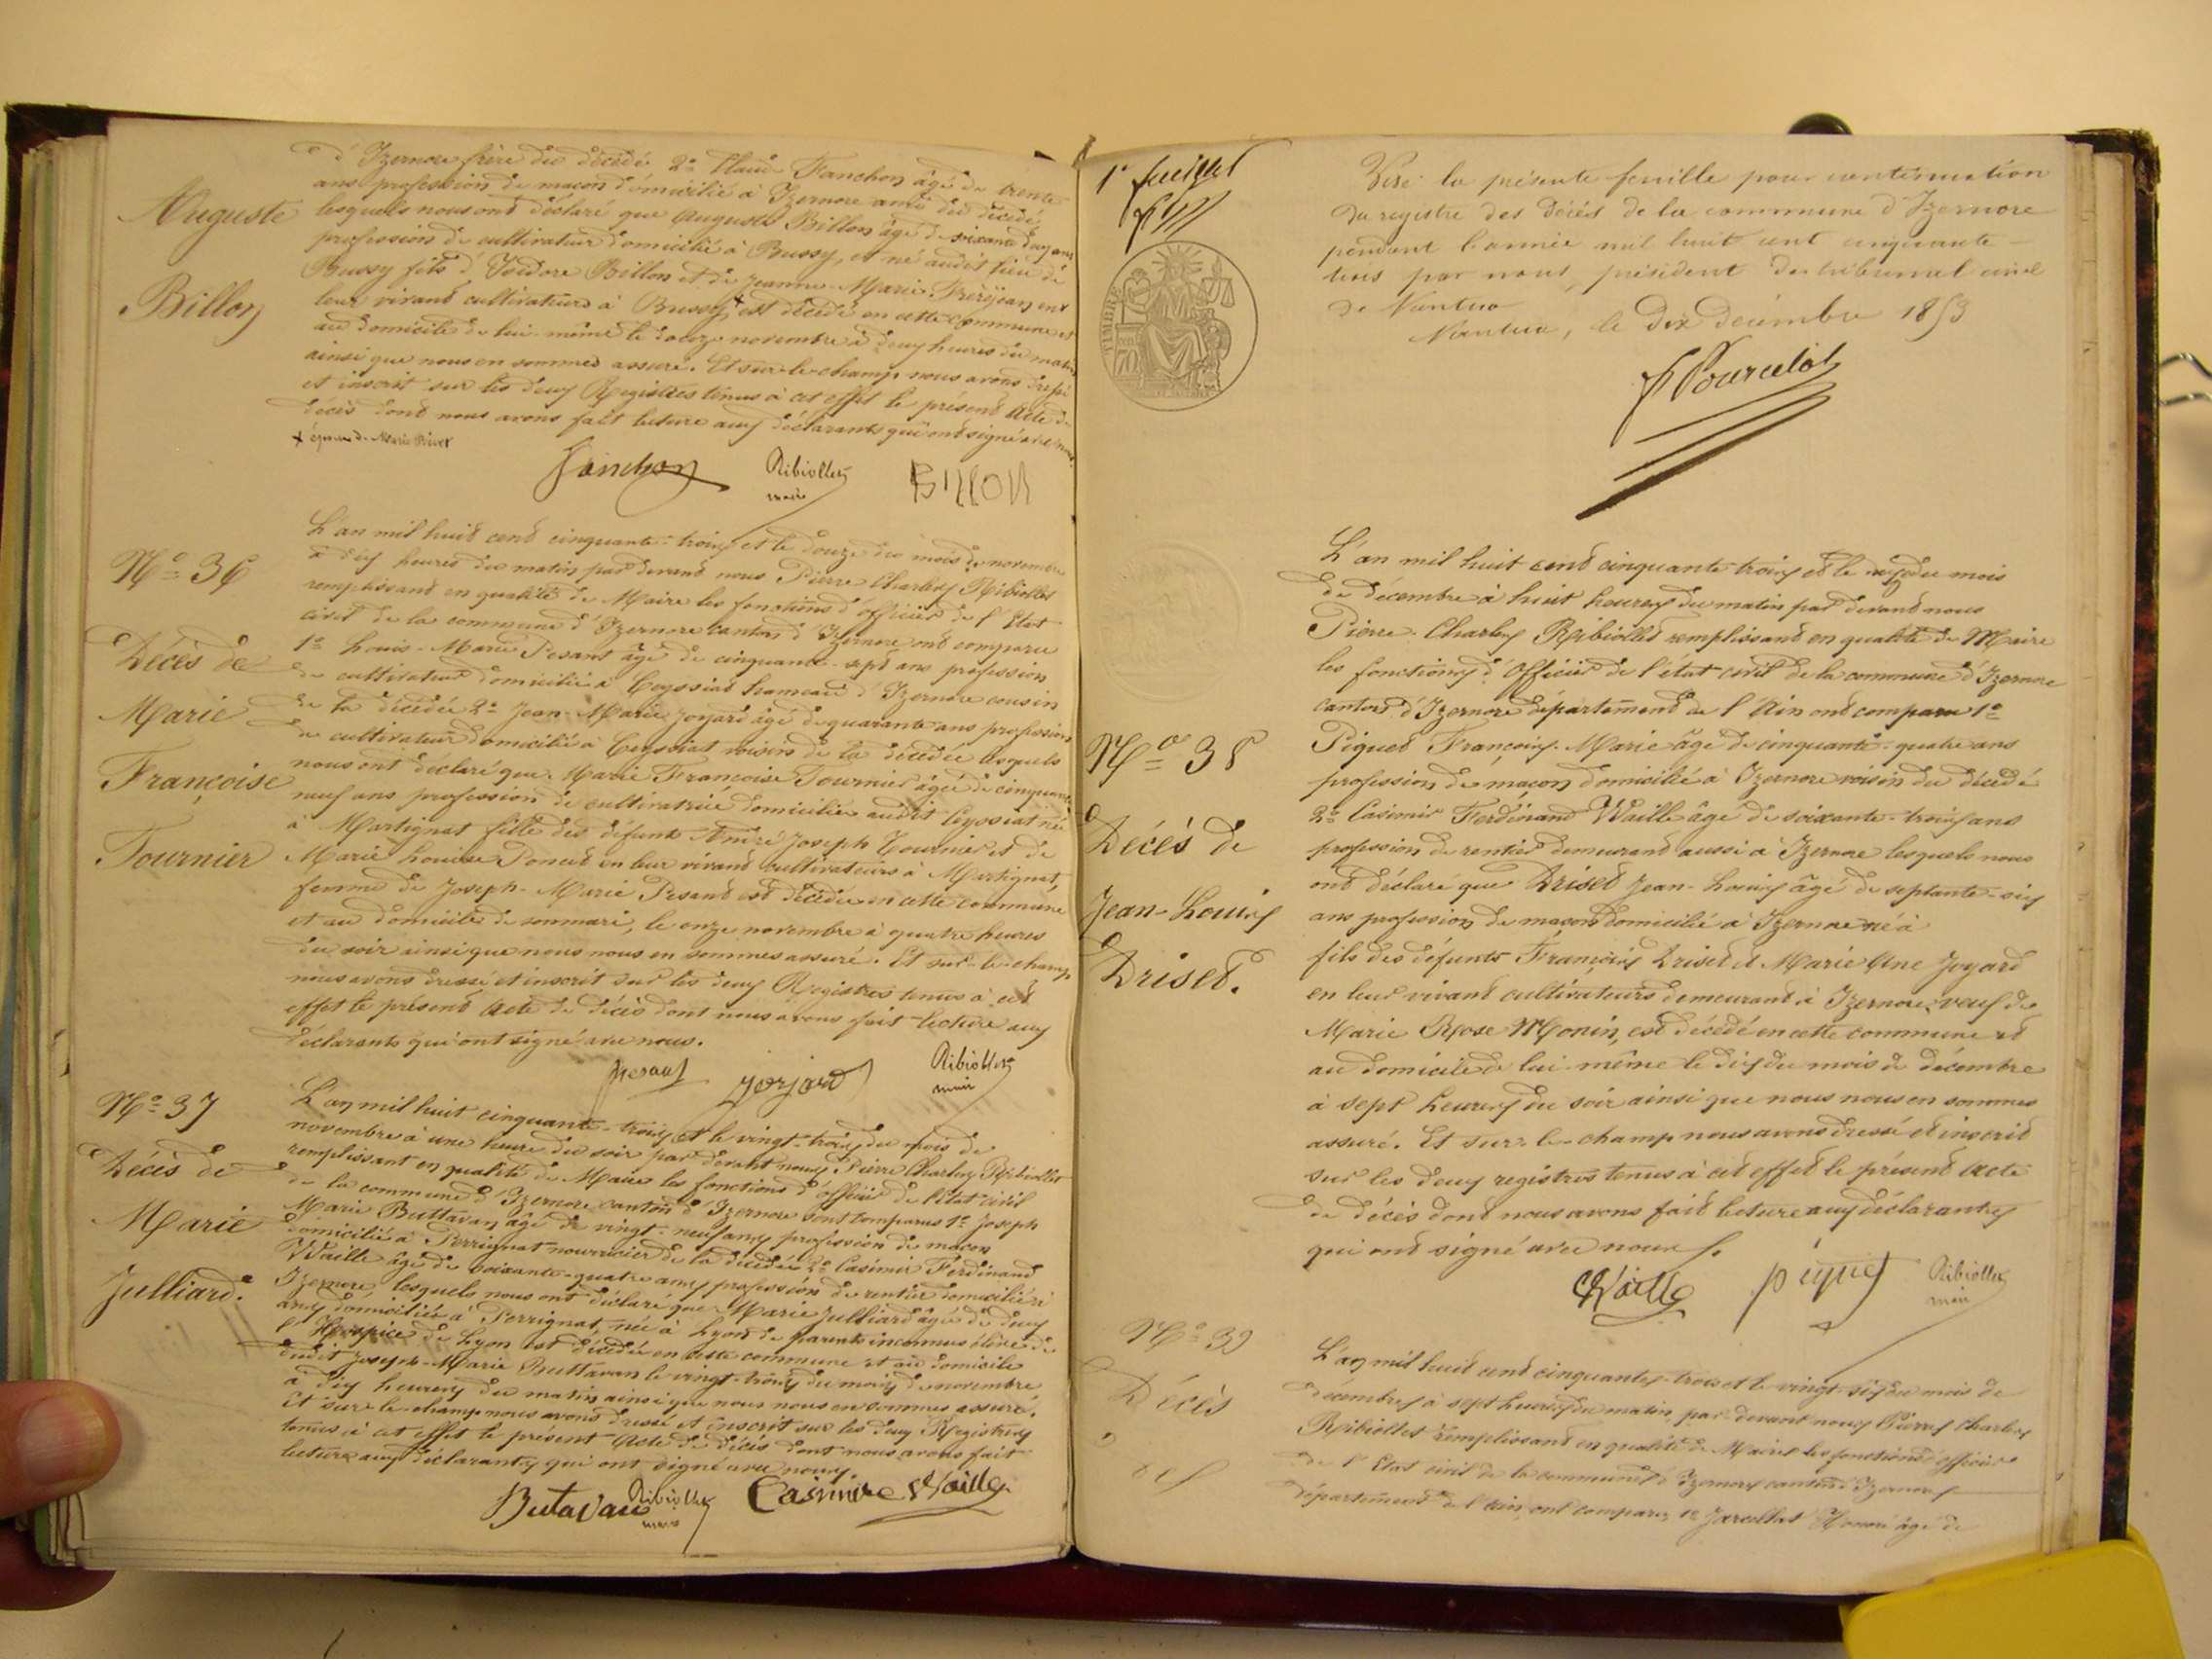 d'Izernore frère du décédé 2° Claude Fanchon âgé de trente
ans profession de maçon domicilié à Izernore ami du décédé
Auguste
Billon
lesquels nous ont déclaré que Auguste Billon âgé de soixante deux ans
profession de cultivateur domicilié à Bussy, et né audit lieu de
Bussy fils d'Isidore Billon et de Jeanne-Marie Frèrejean en
leur vivant cultivateurs à Bussy + est décédé en cette commune et
au domicile de lui-même le douze novembre à deux heures du matin
ainsi que nous en sommes assuré. Et sur-le-champ nous avons dressé
et inscrit sur les deux Registres tenus à cet effet le présent Acte de
décès dont nous avons fait lecture aux déclarants qui ont signé avec nous.
+ époux de Marie
Fanchon Ribiollet BILLON
maire
N° 36
Décès de
Marie
Françoise
Tournier
L'an mil huit cent cinquante-trois et le douze du mois de novembre
à dix heures du matin par devant nous Pierre Charles Ribiollet
remplissant en qualité de Maire les fonctions d'officier de l'Etat
civil de la commune d'Izernore canton d'Izernore ont comparu
1° Louis-Marie Pesant âgé de cinquante-sept ans profession
de cultivateur domicilié à Ceyssiat hameau d'Izernore cousin
de la décédée 2° Jean-Marie Joyard âgé de quarante ans profession
de cultivateur domicilié à Ceyssiat voisin de la décédée lesquels
nous ont déclaré que Marie Françoise Tournier âgée de cinquante
neuf ans profession de cultivatrice domiciliée audit Ceyssiat née
à Martignat fille des défunts André Joseph Tournier et de
Marie Louise Poncet en leur vivant cultivateurs à Martignat,
femme de Joseph-Marie Pesant est décédée en cette commune
et au domicile de son mari, le onze novembre à quatre heures
du soir ainsi que nous nous en sommes assuré. Et sur-le-champ
nous avons dressé et inscrit sur les deux Registres tenus à cet
effet le présent Acte de décès dont nous avons fait lecture aux
déclarants qui ont signé avec nous.
Pesant Joyard Ribiollet
maire
N° 37
Décès de
Marie
Julliard.
L'an mil huit cinquante-trois et le vingt-trois du mois de
novembre à une heure du soir par devant nous Pierre Charles Ribiollet
remplissant en qualité de Maire les fonctions d'officier de l'Etat civil
de la commune d'Izernore canton d'Izernore sont comparus 1° Joseph
Marie Buttavan âgé de vingt-neuf ans profession de maçon
domicilié à Perrignat nourricier de la décédée 2° Casimir Ferdinand
Waille âgé de soixante-quatre ans profession de rentier domicilié à
Izernore lesquels nous ont déclaré que Marie Julliard âgée de deux
ans domiciliée à Perrignat, née à Lyon de parents inconnus élève de
l'Hospice de Lyon est décédée en cette commune et au domicile
dudit Joseph-Marie Buttavan le vingt-trois du mois de novembre
à dix heures du matin ainsi que nous nous en sommes assuré.
Et sur-le-champ nous avons dressé et inscrit sur les deux Registres
tenus à cet effet le présent Acte de décès dont nous avons fait
lecture aux déclarants qui ont signé avec nous
Butavan Ribiollet Casimire Waille
maire
1er feuillet
TIMBRE
Visé la présente feuille pour continuation
du registre des décès de la commune d'Izernore
pendant l'année mil huit cent cinquante
trois par nous, président du tribunal civil
de Nantua
Nantua, le Dix décembre 1853
Pourcelot
N° 38
Décès de
Jean-Louis
Driset.
L'an mil huit cent cinquante-trois et le onze du mois
de décembre à huit heures du matin par devant nous
Pierre-Charles Ribiollet remplissant en qualité de Maire
les fonctions d'Officier de l'état civil de la commune d'Izernore
canton d'Izernore département de l'Ain ont comparu 1°
Piquet François-Marie âgé de cinquante-quatre ans
profession de maçon domicilié à Izernore voisin du décédé
2° Casimir Ferdinand Waille âgé de soixante-trois ans
profession de rentier demeurant aussi à Izernore lesquels nous
ont déclaré que Driset Jean-Louis âgé de septante-six
ans profession de maçon domicilié à Izernore né à
fils des défunts François Driset et Marie Ane Joyard
en leur vivant cultivateurs demeurant à Izernore, veuf de
Marie Rose Monin, est décédé en cette commune et
au domicile de lui-même le dix du mois de décembre
à sept heures du soir ainsi que nous nous en sommes
assuré. Et sur-le-champ nous avons dressé et inscrit
sur les deux registres tenus à cet effet le présent Acte
de décès dont nous avons fait lecture aux déclarants
qui ont signé avec nous.
CWaille piquet Ribiollet
maire
N° 39
Décès
de
L'an mil huit cent cinquante-trois et le vingt-six du mois de
décembre à sept heures du matin par-devant nous Pierre Charles
Ribiollet remplissant en qualité de Maire les fonctions d'officier
de l'Etat civil de la commune d'Izernore canton d'Izernore
département de l'Ain, ont comparu 1° Honoré âgé de